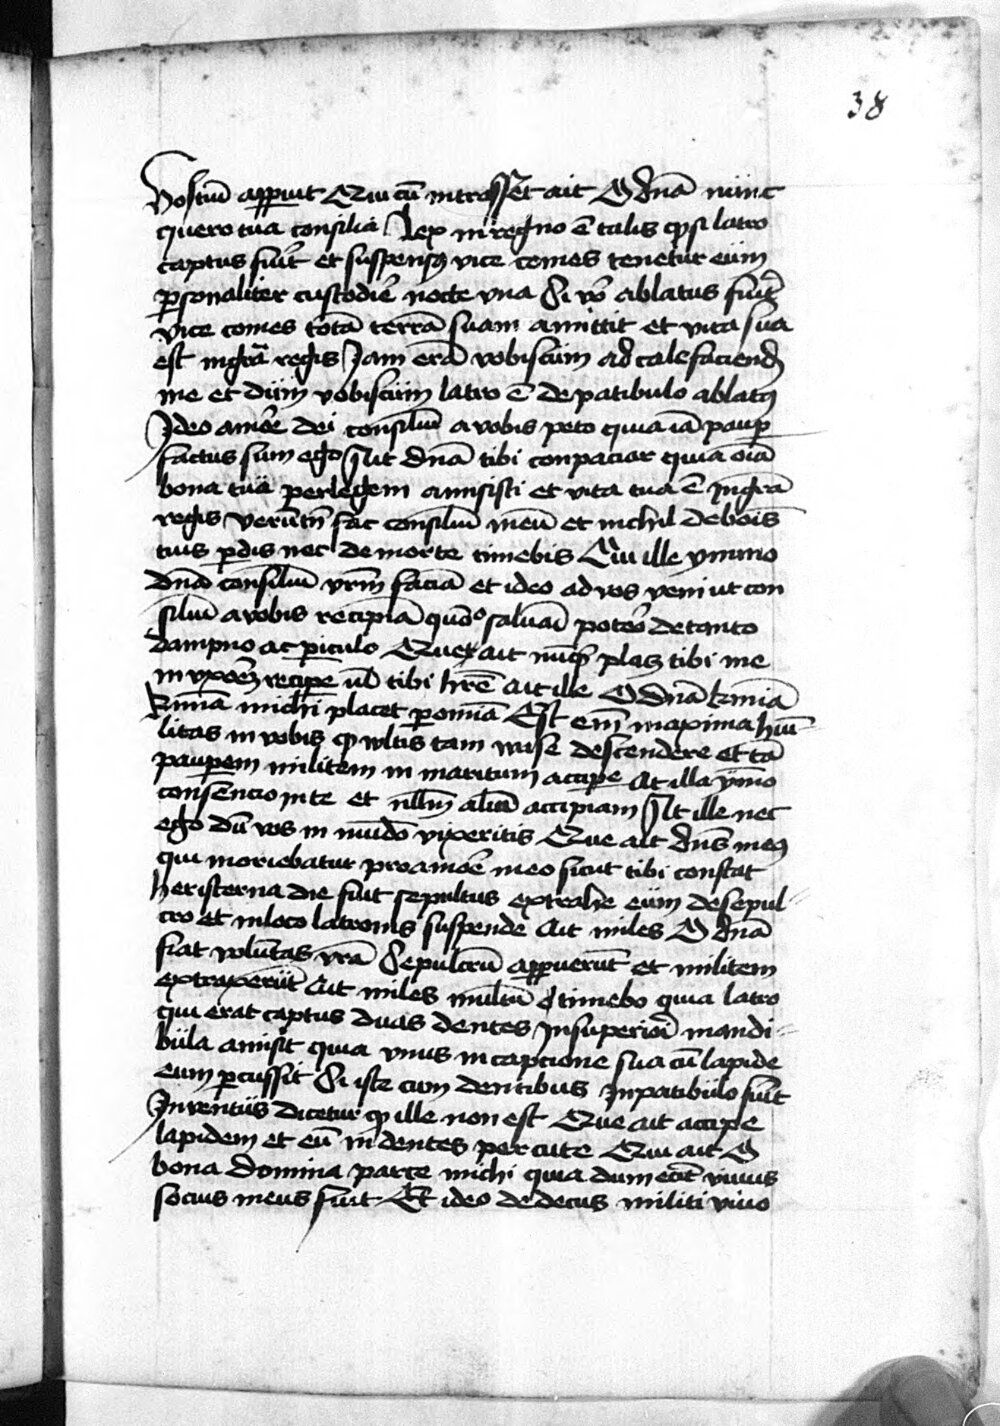 38
hostiū apparuit Qui cū intrasset ait O dn̄a nūnc
quero tua consilia Lex in regno ē talis q̷ si latro
captus fūit et suspensus vice comes tenetur eūm
p̱sonaliter custodir̄e nocte vna Si vō ablatus fūit
vice comes totā terrā suam amittit et vita sua
est in grā regis Jam erā vobiscūm ad calefaciend
me et dūm vobiscūm latro ē de patibulo ablatꝰ
Jdeo amōe dei consiliū a vobis peto quia iā paup̱
factus sum ego Ait dn̄a tibi conpacior quia oīa
bona tua per legem amisisti et vita tua ē in grā
regis verūtn̄ fac consiliū meū et nichil de bonis
tuis p̱dis nec de morte timebis Qui ille ymmo
dn̄a consiliū vrm̄ faciā et ideo ad vos veni ut con
siliū a vobis recipiā quō saluari poterō de tanto
dampno ac p̱iculo Que ait nūq̄ placꝫ tibi me
in vxorē recipe ul̄ tibi hrē Ait ille O dn̄a
michi placet p̱ omīa Est em̄ maxima hūi-
litas in vobis q̷ wltis tam vase descendere et tā
paup̱em militem in maritum accipe At illa ym̄o
consencio in te et nllm̄ aliū accipiam Ait ille nec
ego dū vos in mundo vixeritis Que ait dn̄s meꝰ
qui moriebatur pro amōe meo sicut tibi constat
hesterna die fuit sepultus extrahe eūm de sepul-
cro et in loco latronis suspende Ait miles O dn̄a
fiat volūntas vrā Sepulcrū apparuerūt et militem
extraxerūt Ait miles multū timebo quia latro
qui erat captus duas dentes in superiori mandi-
būla amisit quia vnus in capcione sua cū lapide
eum p̱cussit Si iste cum dentibus in patibūlo fūit
Jnventūs dicetur q̷ ille non est Que ait accipe
lapidem et eū in dentes percute Qui ait O
bona domina parce michi quia dum eēt viuus
socius meus fuit Et ideo dedecus militi viuo